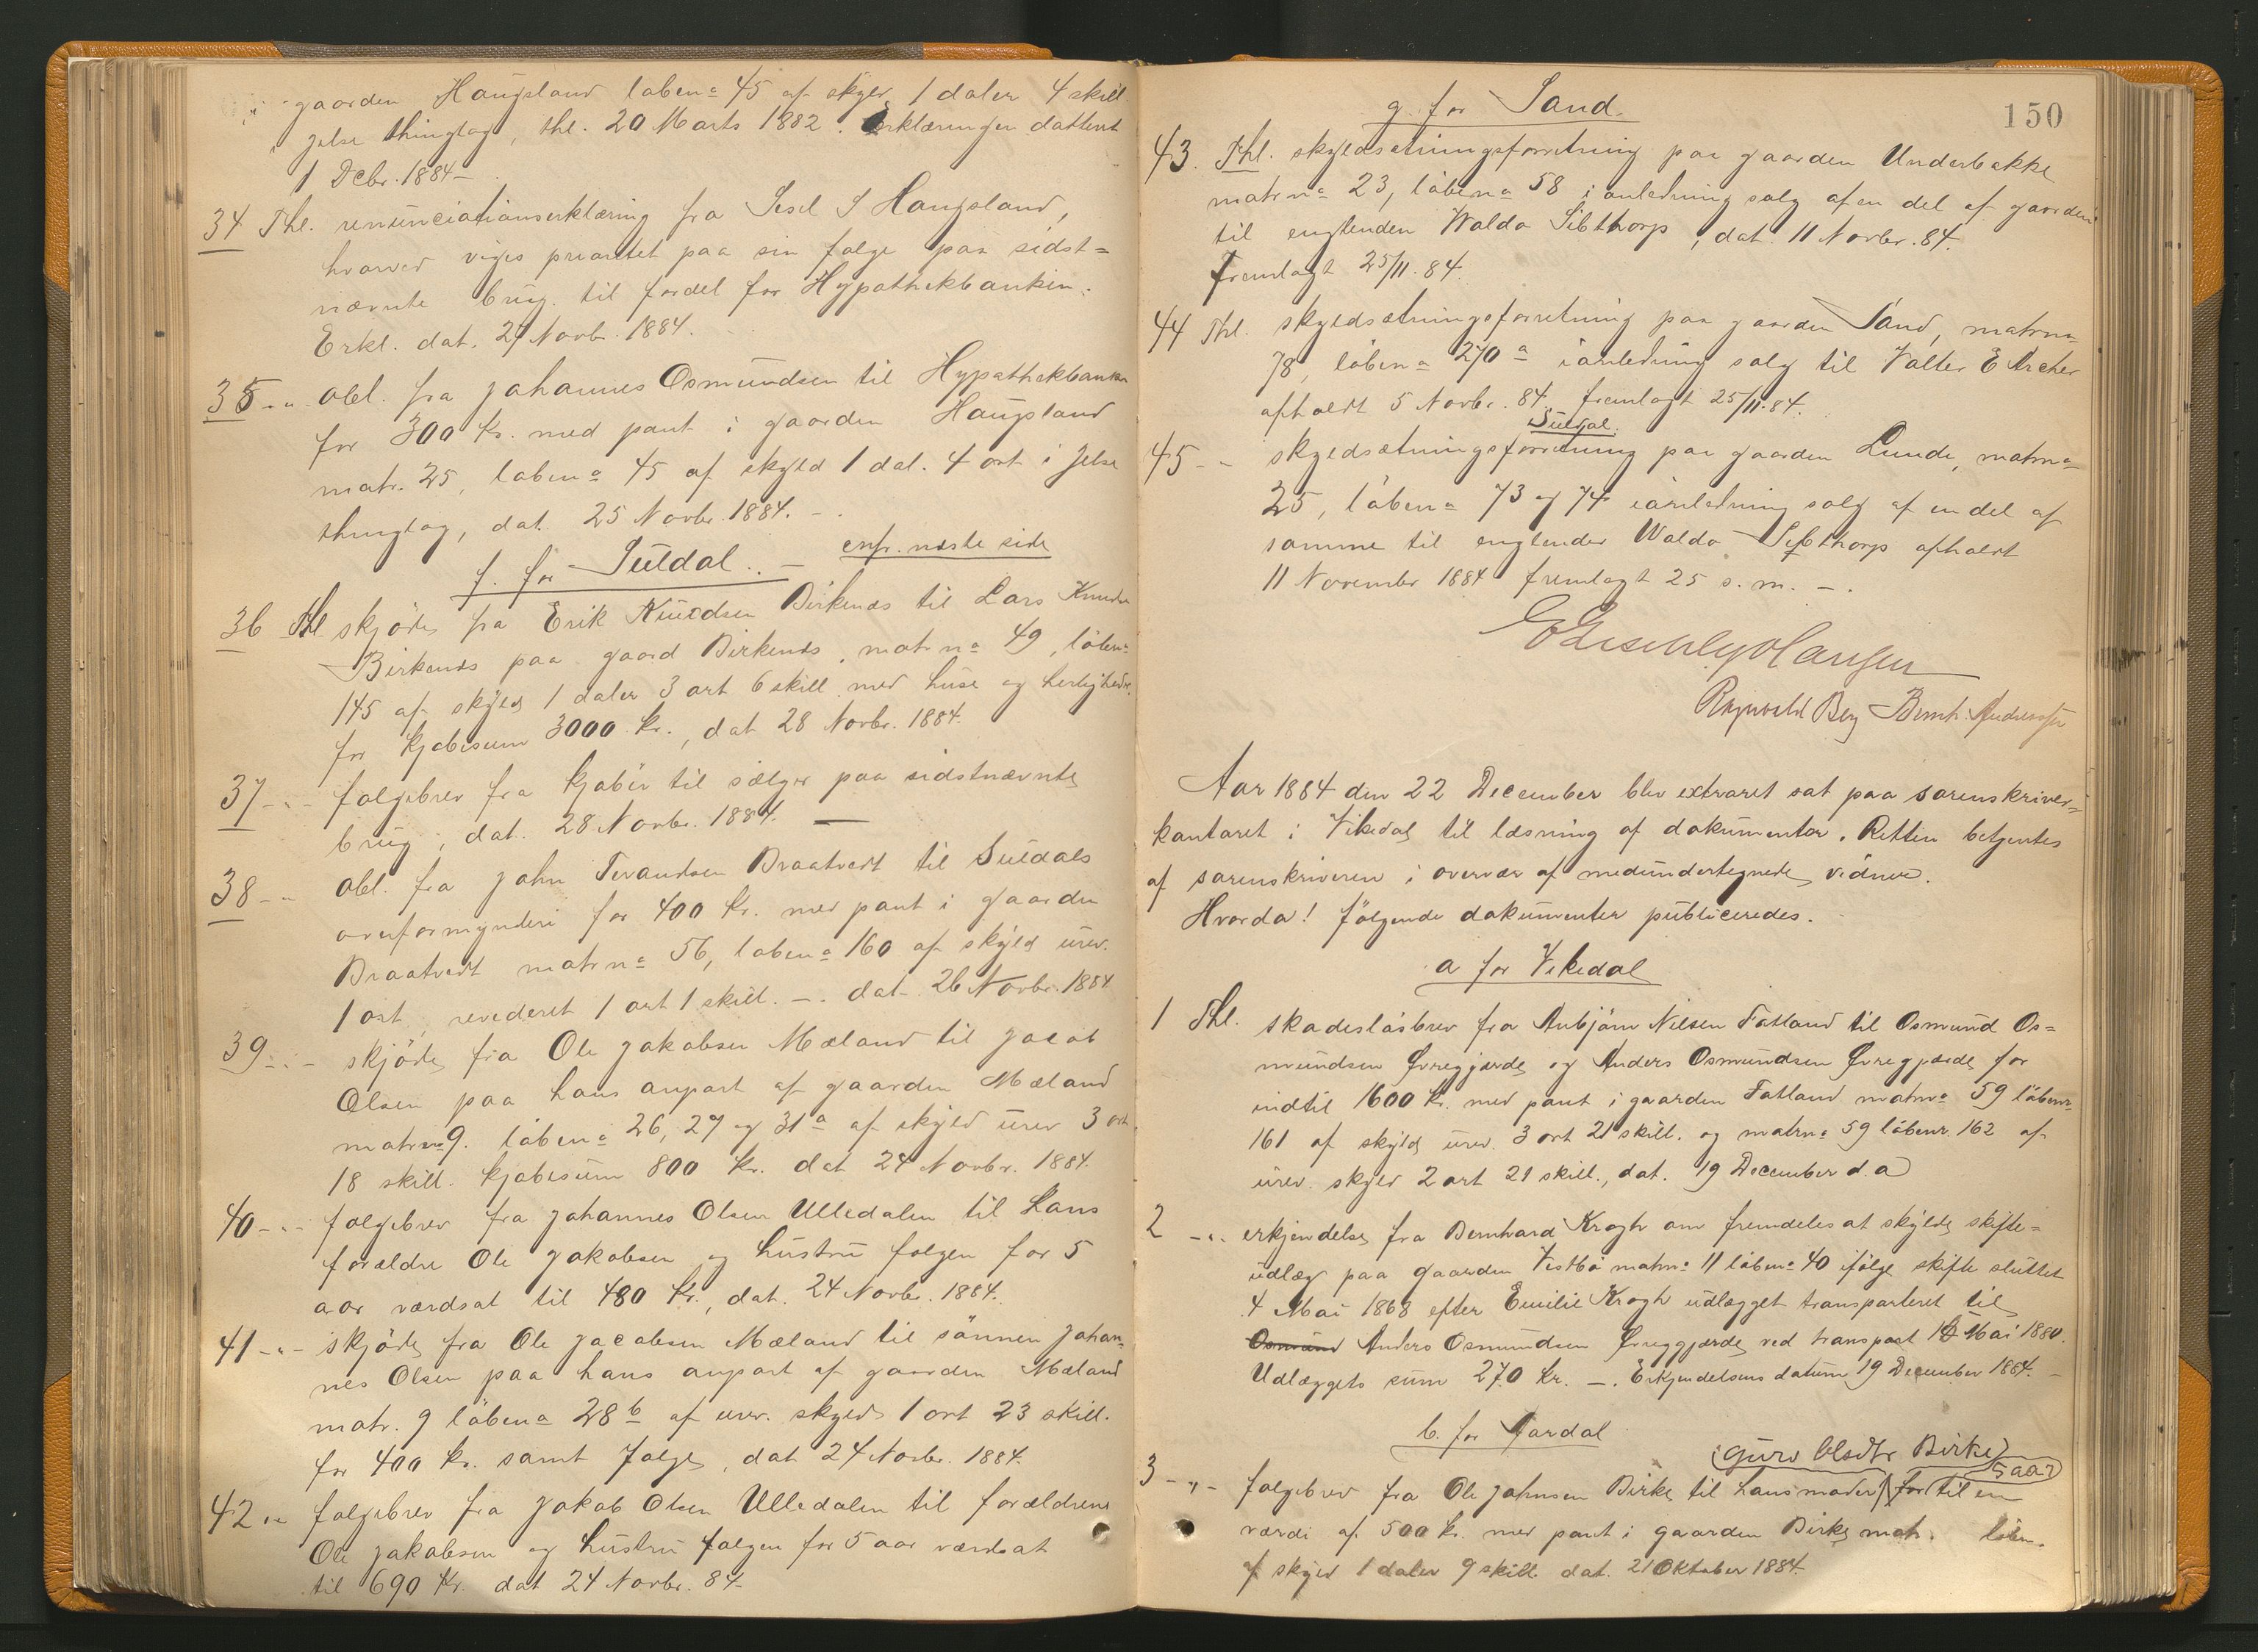 i gaarden Haugsland löbenº 45 af skyld 1 daler 4 skill
i Jelse thinglag, thl. 20 Marts 1882. Erklæringen datteret
1 Debr. 1884 –
34 Thl. renunciationserklæring fra Sesel S Haugsland,
hvorved viges prioritet paa sin folge paa sidst=
nævnte brug til fordel for Hypothekbanken.
Erkl. dat. 27 Novb. 1884.
35 - „ obl. fra Johannes Osmundsen til Hypothekbanken
for 300 Kr. med pant i gaarden Haugsland
matr. 25, löbenº 45 af skyld 1 dal. 4 ort i Jelse
thinglag, dat. 25 Novbr. 1884. –
f. for Suldal. – cnfr. næste side
36 Thl. skjöde fra Erik Knudsen Birkenæs til Lars Knudsen
Birkenæs paa gaard Birkenæs, matr nº 49, löbenº
145 af skyld 1 daler 3 ort 6 skill. med huse og herligheder
for Kjøbesum 3000 Kr., dat 28 Novbr. 1884.
37 - „ - folgebrev fra kjøber til sælger paa sidstnævnte
brug, dat. 28 Novbr. 1884. —
38 - „ obl. fra John Torandsen Braatvedt til Suldals
overformynderi for 400 Kr. med pant i gaarden
Braatvedt matr nº 56, löbenº 160 af skyld urev.
1 ort, revideret 1 ort 1 skill. –. dat. 26 Novbr. 1884
39 - „ - skjöde fra Ole Jakobsen Mæland til Jacob
Olsen paa hans anpart af gaarden Mæland
matrnº 9. löbenº 26, 27 og 31 a af skyld urev 3 ort
18 skill. kjøbesum 800 Kr. dat 24 Novbr. 1884.
40 - „ - folgebrev fra Johannes Olsen Ulledalen til hans
forældre Ole Jakobsen og hustru folgen for 5
aar værdsat til 480 Kr., dat. 24 Novbr. 1884.
41 - „ - skjöde fra Ole Jacobsen Mæland til sönnen Johan=
nes Olsen paa hans anpart af gaarden Mæland
matr. 9 löbenº 28 b af urev. skyld 1 ort 23 skill.
for 400 Kr. samt folge, dat 24 Novbr. 1884.
42 „ folgebrev fra Jakob Olsen Ulledalen til forældrene
Ole Jakobsen og hustru folgen for 5 aar værdsat
til 690 Kr. dat 24 Novbr. 84 –
150
g. for Sand.
43. Thl. skyldsætningsforretning paa gaarden Underbakke
matr nº 23, löbenº 58 i anledning salg af en del af gaarden
til englenden Waldo Sibthorp, dat. 11 Novbr. 84.
fremlagt 25/11. 84.
44 Thl. skyldsætningsforretning paa gaarden Sand, matrnº
78, löbenº 270 a i anledning salg til Valter E Archer
afholdt 5 Novbr. 84. fremlagt 25/11. 84.
Suldal.
45 - - skyldsætningsforretning paa gaarden Lunde, matrnº
25, löbenº 73 og 74 i anledning salg af en del af
samme til englender Waldo Sibthorp afholdt
11 November 1884 fremlagt 25 s. m. –.
Hansen
Ragnvald Berg Bernh. Andersen
Aar 1884 den 22 December blev extraret sat paa sorenskriver=
kontoret i Vikedal til læsning af dokumenter. Retten betjentes
af sorenskriveren i overvær af medundertegnede vidner.
Hvorda! fölgende dokumenter publiceredes.
a for Vikedal
1 Thl. skadeslösbrev fra Anbjörn Nilsen Fatland til Osmund Os=
mundsen Øvregjærde og Anders Osmundsen Øvregjærde for
indtil 1600 Kr. med pant i gaarden Fatland matrnº 59 löbenr
161 af skyld urev. 3 ort 21 skill. og matrnº 59 löbenr. 162 af
urev. skyld 2 ort 21 skill., dat. 19 December d. a
2 - „ - erkjendelse fra Bernhard Krogh om fremdeles at skylde skifte=
udlæg paa gaarden Vestbö matrnº 11 löbenº 40 ifölge skifte sluttet
4 Mai 1868 efter Emilie Krogh udlægget transporteret til
Osmund Anders Osmundsen Øvregjærde ved transport 18 Mai 1880.
Udlæggets sum 270 Kr. –. Erkjendelsens datum 19 December 1884. –
b. for Jardal
(Guro Olsdtr Birke)
5 aar
3 - „ - folgebrev fra Ole Johnsen Birke til hans moder for til en
værdi af 500 Kr. med pant i gaarden Birke matr. löben.
af skyld 1 daler 9 skill. dat. 21 Oktober 1884.